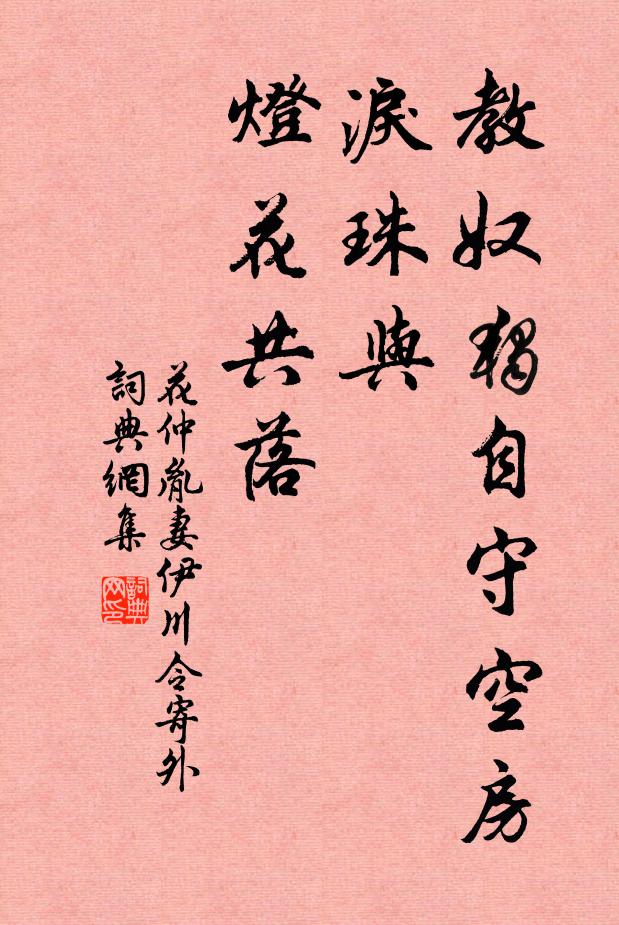 教奴獨自守空房
淚珠與
燈花共落
花仲胤妻伊川令寄外
詞典網集
詞典
网印